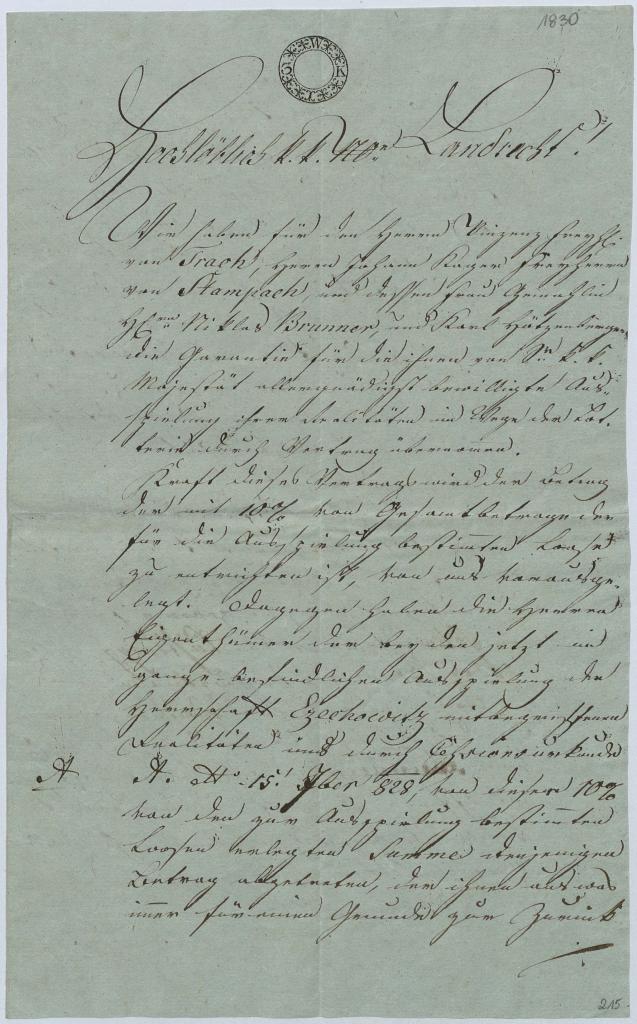 1830
W K
Hochlöbliches k. k. N. Ö. Landrecht!
Wir haben für den Herrn Vinzenz Freyh.
von Trach, Herrn Johann Kager Freyherrn
von Stampach, und dessen Frau Gemahlin
Niklas Brunner, und Karl
die Garantie für die ihnen von Sr. k. k.
Majestät allergnädigst bewilligte Aus-
spielung ihrer Realitäten im Wege der Lot-
terie durch Vertrag übernomen.
Kraft dieses Vertrags wird der Betrag
der mit 10% von Gesamtbetrage der
für die Ausspielung bestimten Loose
zu entrichten ist, von uns vorausge-
legt. Dagegen haben die Herren
Eigenthümer der bey der jetzt im
gange befindlichen Ausspielung der
Herrschaft Ezechowitz mitbegriffenen
Realitäten uns durch Cessionsurkunde
A A. 15. 7ber 828, von dieser 10%
von den zur Ausspielung bestimten
Loosen erlegten Summe denjenigen
Betrag abgetreten, der ihnen aus was
imer für einen Grunde zur Zurück
215